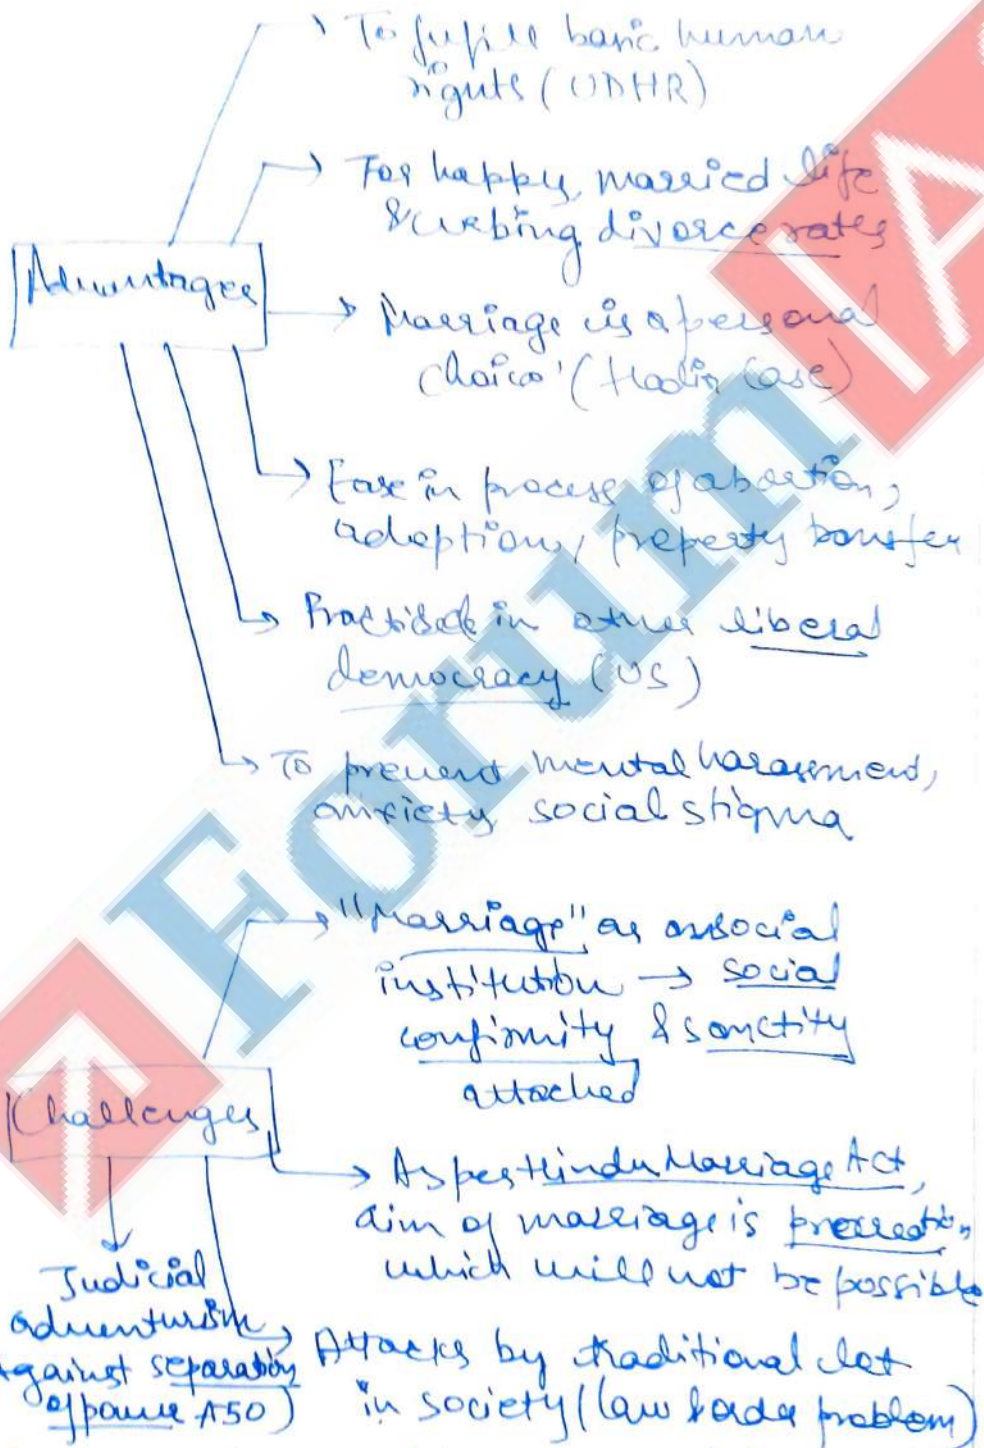 To fufill basic human
rights (UDHR)
For happy, married life
& curbing divorce rates
Advantages
Marriage is a personal
choice' (Hadiya Case)
Ease in process of abortion,
adoption, property transfer
Practised in other liberal
democracy (US)
To prevent mental harassment,
anxiety, social stigma
"Marriage" as a social
institution → social
confirmity & sanctity
attached
Challenges
As per Hindu Marriage Act,
aim of marriage is procreation,
which will not be possible
Judicial
adventurism
against separation
of power A50)
Attacks by traditional
in society (law & order problem)
Forum IAS